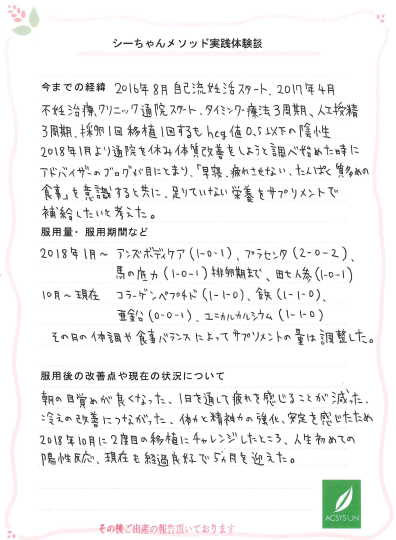 シーちゃんメソッド実践体験談
今までの経緯 2016年8月 自己流妊活スタート、2017年4月
不妊治療クリニック通院スタート、タイミング療法3周期、人工授精
3周期、採卵1回 移植1回するも hcg値0.5以下の陰性
2018年1月より通院を休み体質改善をしようと調べ始めた時に
アドバイザーのブログが目にとまり、「早寝、疲れさせない、たんぱく質多めの
食事」を意識すると共に、足りていない栄養をサプリメントで
補給したいと考えた。
服用量・服用期間など
2018年1月〜 アンズボディケア(1-0-1)、プラセンタ(2-0-2)、
馬の底力(1-0-1)排卵期まで、田七人参(1-0-1)
10月〜現在 コラーゲンペプチド(1-1-0)、鉄(1-1-0)、
亜鉛(0-0-1)、ユニカルカルシウム(1-1-0)
その日の体調や食事バランスによってサプリメントの量は調整した。
服用後の改善点や現在の状況について
朝の目覚めが良くなった、1日を通して疲れを感じることが減った、
冷えの改善につながった、体力と精神力の強化、安定を感じたため
2018年10月に2度目の移植にチャレンジしたところ、人生初めての
陽性反応、現在も経過良好で5ヶ月を迎えた。
ACSYSUN
その後ご出産の報告頂いております